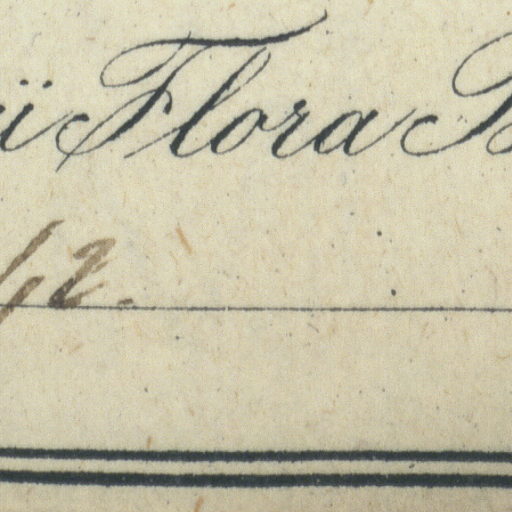 ii Flora B
42.